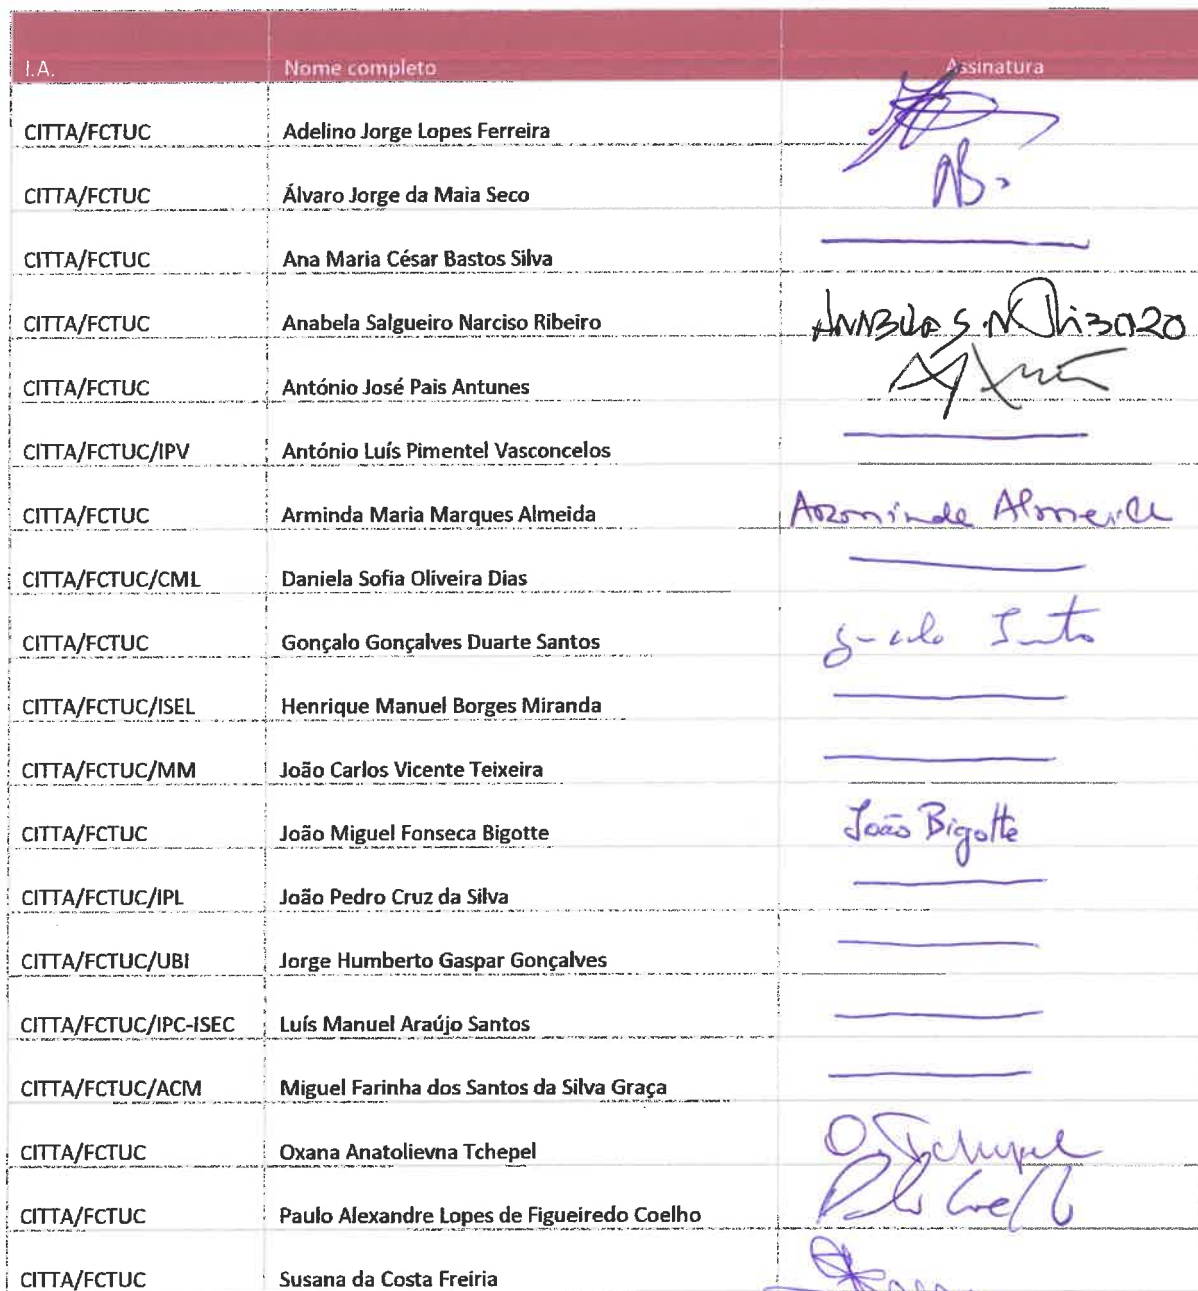 I.A. Nome completo Assinatura
CITTA/FCTUC Adelino Jorge Lopes Ferreira
CITTA/FCTUC Álvaro Jorge da Maia Seco
CITTA/FCTUC Ana Maria César Bastos Silva
CITTA/FCTUC Anabela Salgueiro Narciso Ribeiro
CITTA/FCTUC António José Pais Antunes
CITTA/FCTUC/IPV António Luís Pimentel Vasconcelos
CITTA/FCTUC Arminda Maria Marques Almeida Arminda Almeida
CITTA/FCTUC/CML Daniela Sofia Oliveira Dias
CITTA/FCTUC Gonçalo Gonçalves Duarte Santos
CITTA/FCTUC/ISEL Henrique Manuel Borges Miranda
CITTA/FCTUC/MM João Carlos Vicente Teixeira
CITTA/FCTUC João Miguel Fonseca Bigotte João Bigotte
CITTA/FCTUC/IPL João Pedro Cruz da Silva
CITTA/FCTUC/UBI Jorge Humberto Gaspar Gonçalves
CITTA/FCTUC/IPC-ISEC Luís Manuel Araújo Santos
CITTA/FCTUC/ACM Miguel Farinha dos Santos da Silva Graça
CITTA/FCTUC Oxana Anatolievna Tchepel O. Tchepel
CITTA/FCTUC Paulo Alexandre Lopes de Figueiredo Coelho
CITTA/FCTUC Susana da Costa Freiria